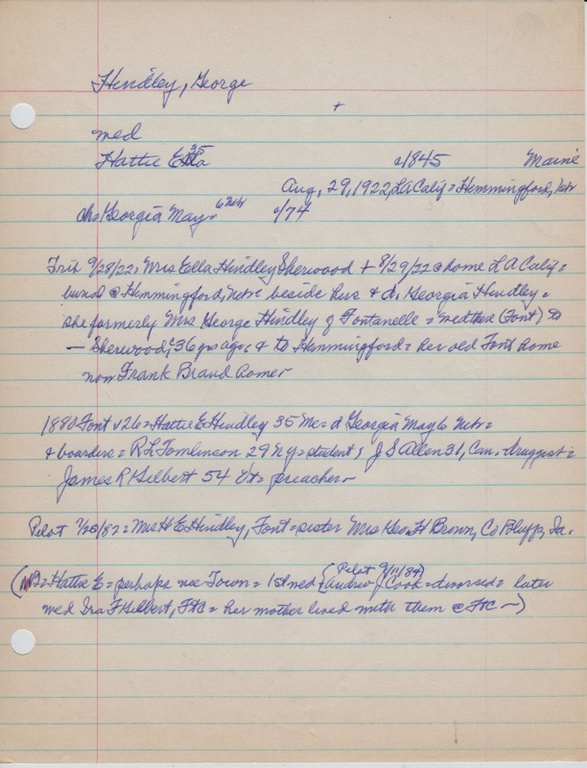 Hindley, George
+
med
Hattie Ella 35 c/1845 Maine
Aug, 29, 1922, LA Calif = Hemmingford, Nebr
ch = Georgia May = 6 Neb c/74
Trib 9/28/22, Mrs Ella Hindley Sherwood + 8/29/22 @ home L A Calif =
buried @ Hemmingford, Nebr beside hus & d, Georgia Hindley =
she formerly Mrs George Hindley of Fontanelle = med there (Font) to
— Sherwood, 36 yrs ago, & to Hemmingford = her old Font home
now Frank Brand Romer —
1880 Font v 26 = Hattie E Hindley 35 Me = d Georgia May 6 Nebr =
& boarders = R L Tomlinson 29 N Y = student; J S Allen 31, Can. druggist =
James R Gilbert 54 Vt = preacher —
Pilot 7/20/82 = Mrs H E Hindley, Font = sister Mrs Geo. H Brown, Co Bluffs, Ia.
(NB = Hattie E = perhaps nee Town = 1st med (Pilot 9/11/84)
Andrew J Cook = divorced = later
med Ira F Gilbert, FtC = her mother lived with them @ FtC —)